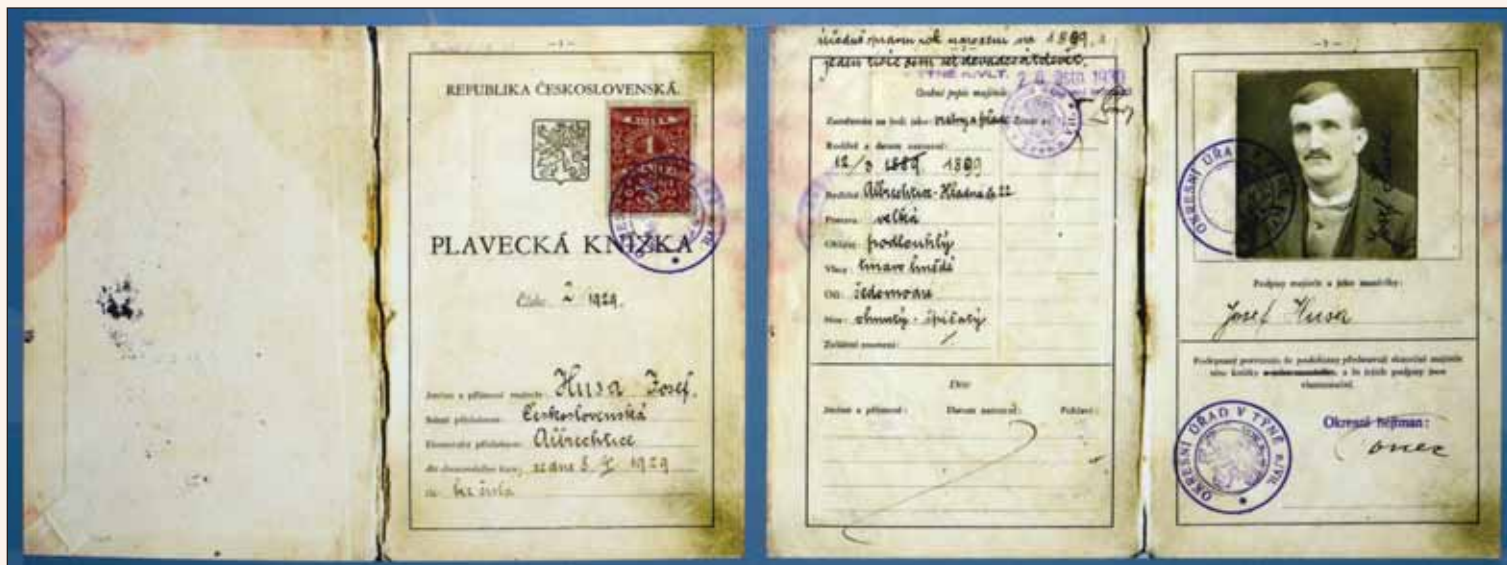 – 1 –
REPUBLIKA ČESKOSLOVENSKÁ.
1
PLAVECKÁ KNÍŽKA
Číslo 2 1929.
Jméno a příjmení majitele: Husa Josef.
Státní příslušnost: Československá
Domovská příslušnost: Albrechtice
dle domovského listu, ze dne 1929
čís. bez čísla
rok narození na 1899,
jeden tisíc osm set devadesát devět.
V TÝNĚ n/VLT.
Osobní popis majitele
Zaměstnán na lodi jako:
Rodiště a datum narození:
12/3 1889 1899
Bydliště: Albrechtice-Hladná čp 22
Postava: velká
Obličej: podlouhlý
Vlasy: tmavo hnědé
Oči: šedomodré
Nos: ohnutý - špičatý
Zvláštní znamení: /
Děti
Jméno a příjmení: Datum narození: Pohlaví:
– 3 –
OKRESNÍ ÚŘAD V
Josef Husa
Podpisy majitele a jeho manželky:
Josef Husa
Podepsaný potvrzuje, že podobizny představují skutečné majitele
této knížky a že jejich podpisy jsou
vlastnoruční.
OKRESNÍ ÚŘAD V TÝNĚ n/Vlt.
Okresní hejtman: